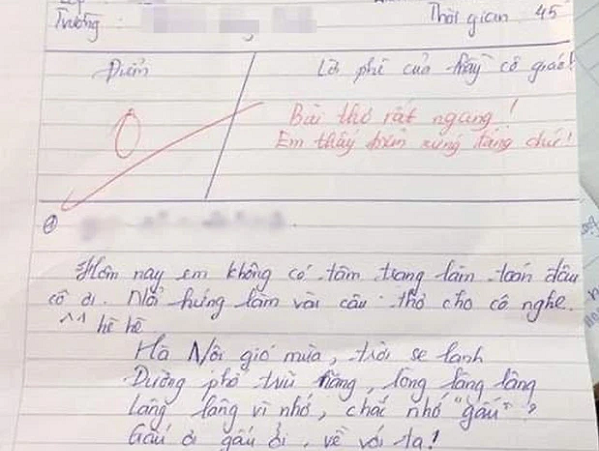 Trường: Thời gian: 45
Điểm
Lời phê của thầy cô giáo!
0
Bài thơ rất ngang!
Em thấy điểm xứng đáng chứ!
Hôm nay em không có tâm trạng làm toán đâu
cô ơi. Nổi hứng làm vài câu thơ cho cô nghe.
^^ hề hề
Hà Nội gió mùa, trời se lạnh
Đường phố trĩu nặng, lòng lâng lâng
Lâng lâng vì nhớ, chắc nhớ "gấu"?
Gấu ơi gấu ơi, về với ta!